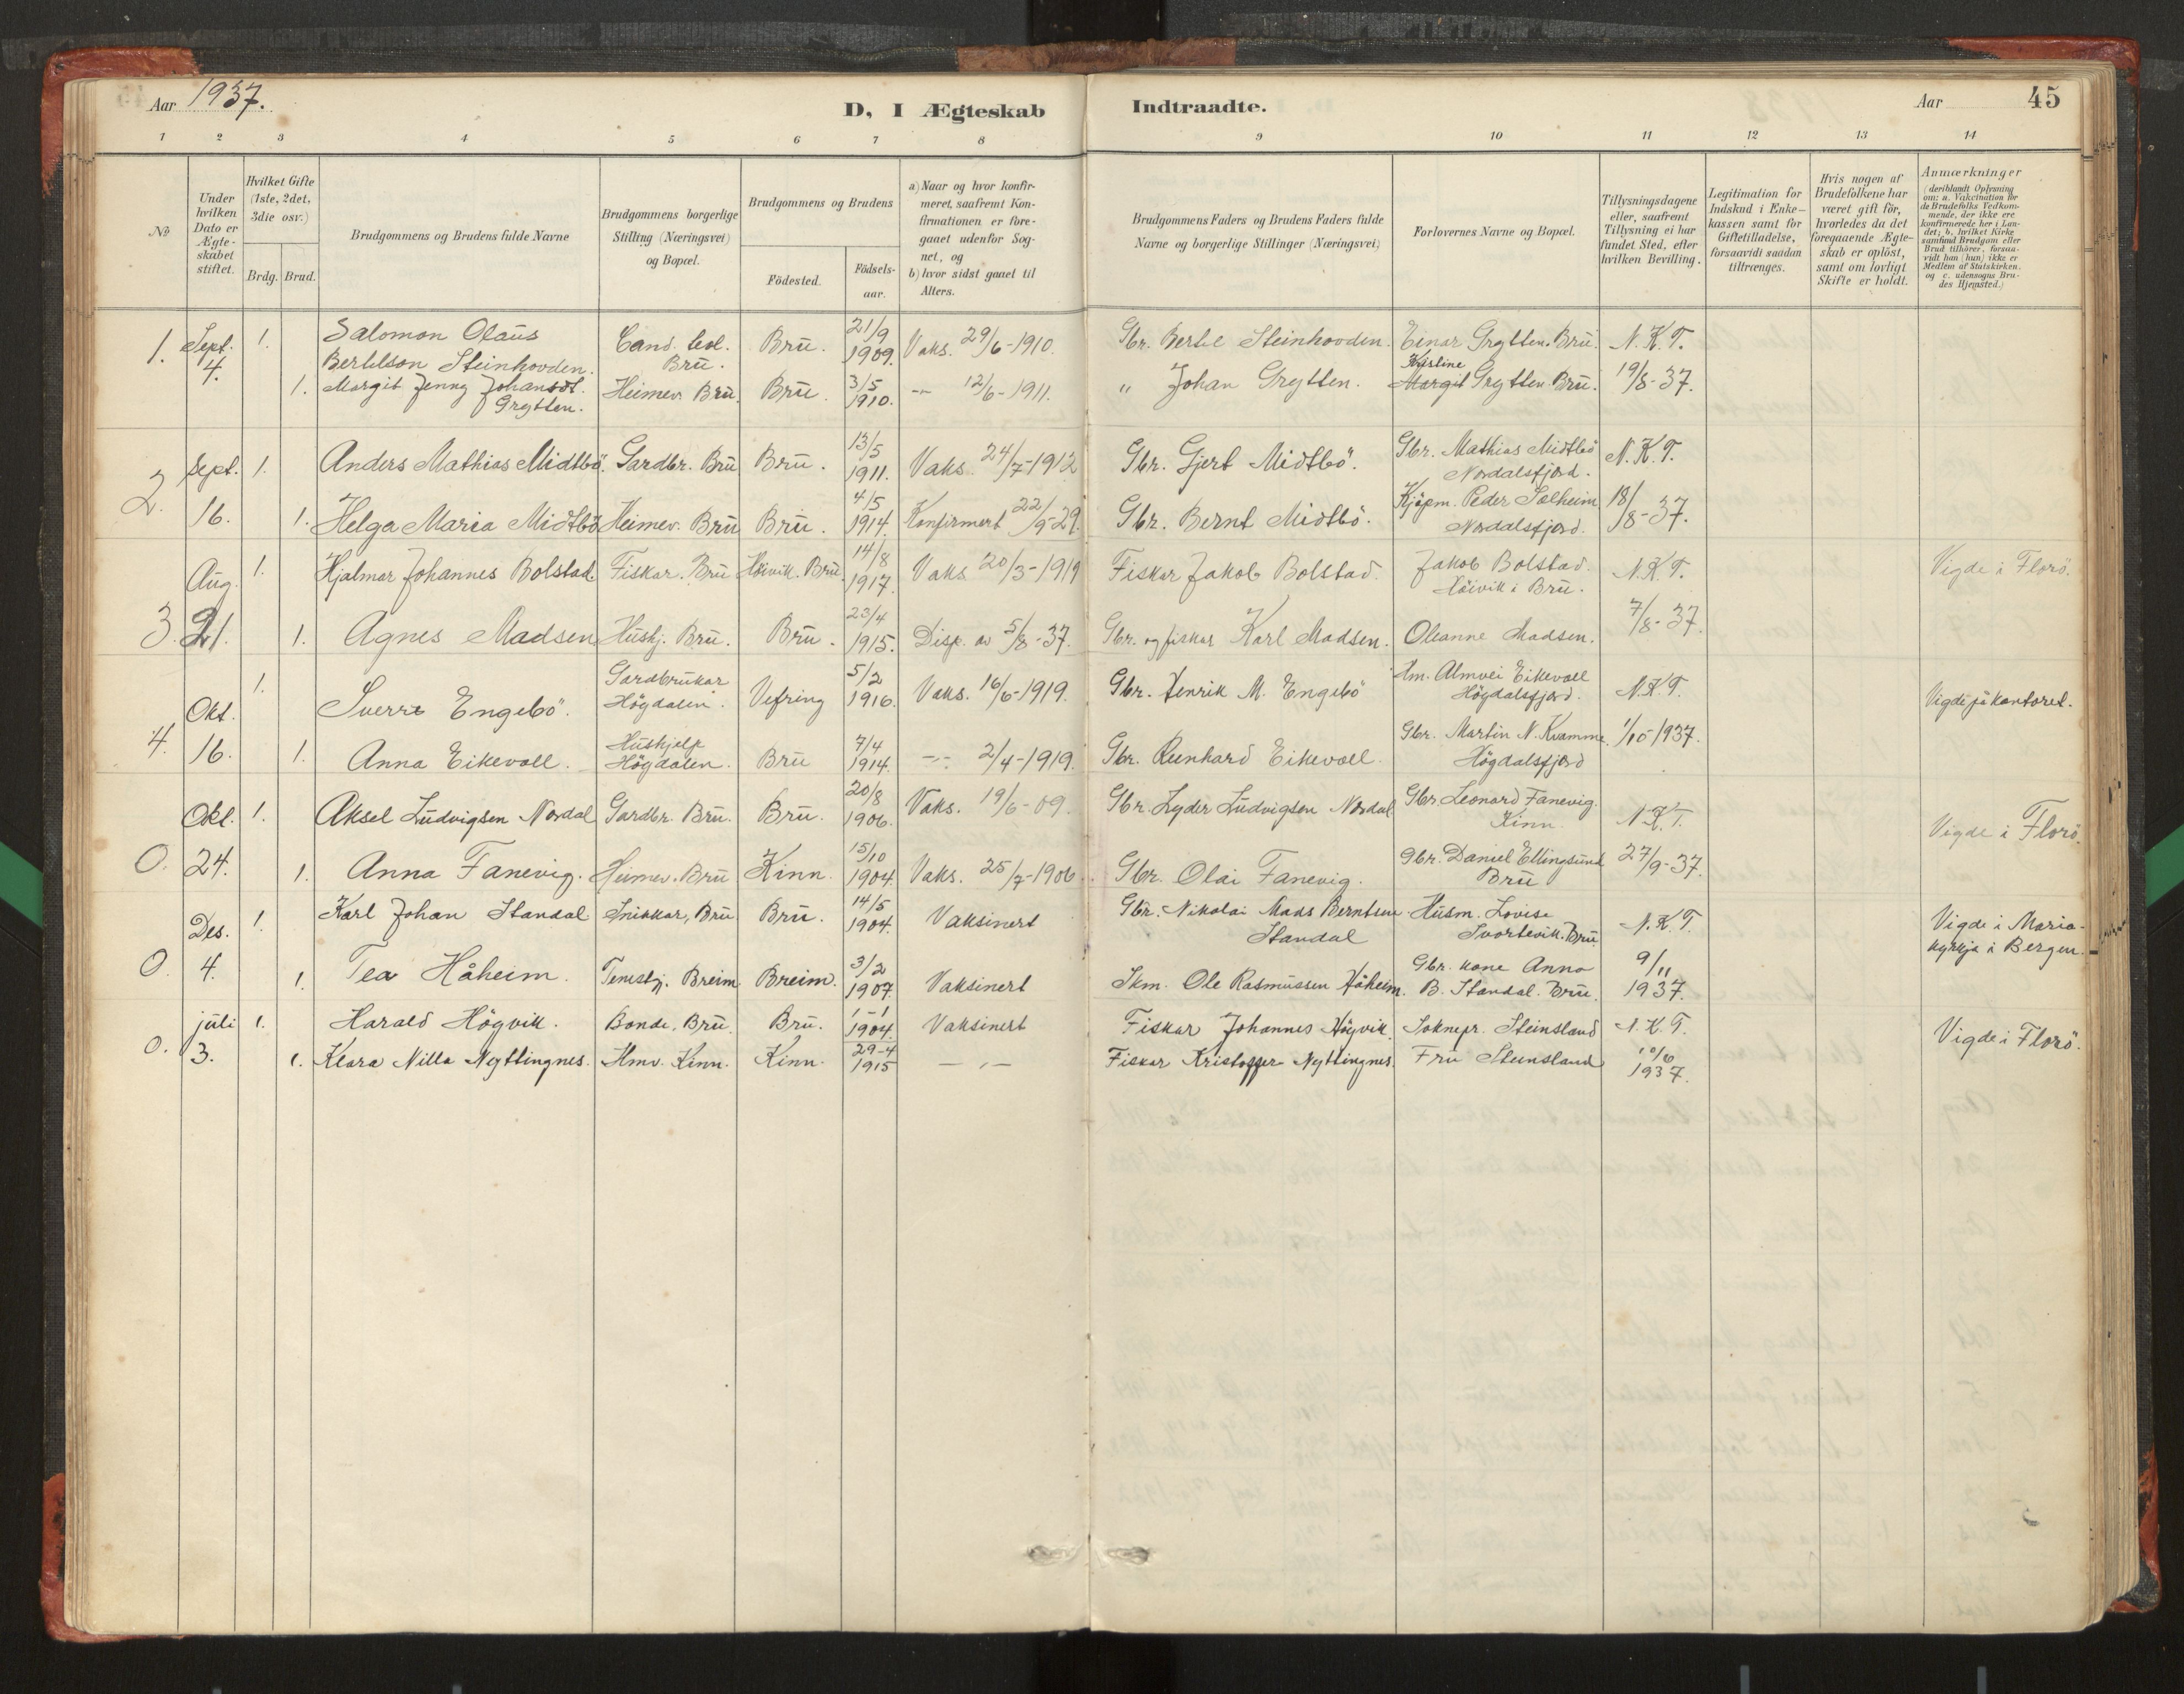 Aar 1937.
D, I Ægteskab Indtraadte.
Aar 45
1 2 3 4 5 6 7 8 9 10 11 12 13 14
No
Under hvilken Dato er Ægteskabet stiftet.
Hvilket Gifte (1ste, 2det, 3die osv.)
Brdg. Brud.
Brudgommens og Brudens fulde Navne
Brudgommens borgerlige Stilling (Næringsvei) og Bopæl.
Brudgommens og Brudens
Födested.
Födsels-aar.
a) Naar og hvor konfirmeret, saafremt Konfirmationen er foregaaet udenfor Sognet, og
b) hvor sidst gaaet til Alters.
Brudgommens Faders og Brudens Faders fulde Navne og borgerlige Stillinger (Næringsvei)
Forlovernes Navne og Bopæl.
Tillysningsdagene eller, saafremt Tillysning ei har fundet Sted, efter hvilken Bevilling.
Legitimation for Indskud i Enkekassen samt for Giftetilladelse, forsaavidt saadan tiltrænges.
Hvis nogen af Brudefolkene har været gift för, hvorledes da det foregaaende Ægteskab er oplöst, samt om lovligt Skifte er holdt.
Anmærkninger
(deriblandt Oplysning om: a. Vakcination for de Brudefolks Vedkommende, der ikke ere konfirmerede her i Landet; b. hvilket Kirkesamfund Brudgom eller Brud tilhörer, forsaavidt han (hun) ikke er Medlem af Statskirken, og c. udensogns Brudes Hjemsted.)
1. Sept. 4. 1. Salomon Olaus Bertelson Steinhovden. Cand. teol. Brū. Brū. 21/9 1909. Vaks. 29/6-1910. Gbr. Bertel Steinhovden. Einar Grytten. Brū. N.K.T.
1. Margit Jenny Johansdt. Grytten. Heimev. Brū. Brū. 3/5 1910. -"- 12/6-1911. " Johan Grytten. Kristine Margit Grytten Brū. 19/8-37.
2. Sept. 16. 1. Anders Mathias Midtbö. Gardbr. Brū Brū. 13/5 1911. Vaks. 24/7-1912 Gbr. Gjert Midtbö. Gbr. Mathias Midtbö Nordalsfjord. N.K.T.
1. Helga Maria Midtbö Heimev. Brū Brū. 4/5 1914. Konfirmert 22/9-29. Gbr. Bernt Midtbö. Kjöpm. Peder Solheim Nordalsfjord. 18/8-37.
3. Aug. 21. 1. Hjalmar Johannes Bolstad. Fiskar. Brū Höivik. Brū. 14/8 1917. Vaks 20/3-1919 Fiskar Jakob Bolstad. Jakob Bolstad. Höivik i Brū. N.K.T. Vigde i Florö.
1. Agnes Madsen Hushj. Brū. Brū. 23/4 1915. Disp. av 5/8-37. Gbr. og fiskar Karl Madsen. Oleanne Madsen. 7/8-37.
4. Okt. 16. 1. Sverre Engebö. Gardbrukar Högdalen. Vefring 5/2 1916. Vaks. 16/6-1919. Gbr. Henrik M. Engebö Hm. Almvei Eikevoll Högdalsfjord. N.K.T. Vigde på kontoret.
1. Anna Eikevoll. Hushjelp Högdalen. Brū 7/4 1914. -"- 2/4-1919. Gbr. Reinhard Eikevoll. Gbr. Martin N. Kvamme. Högdalsfjord 1/10-1937.
0. Okt. 24. 1. Aksel Ludvigsen Nordal Gardbr. Brū. Brū. 20/8 1906. Vaks. 19/6-09. Gbr. Lyder Ludvigsen Nordal Gbr. Leonard Fanevig. Kinn. N.K.T. Vigde i Florö.
1. Anna Fanevig. Heimev. Brū Kinn. 15/10 1904. Vaks. 25/7-1906. Gbr. Olai Fanevig. Gbr. Daniel Ellingsund Brū 27/9-37.
0. Des. 4. 1. Karl Johan Standal Snikkar, Brū Brū. 14/5 1904. Vaksinert Gbr. Nikolai Mads Berntsen Standal Husm. Lovise Svortevik. Brū N.K.T. Vigde i Maria-kyrkja i Bergen.
1. Tea Håheim. Tenestj. Breim Breim. 3/2 1907. Vaksinert Skm. Ole Rasmussen Håheim. Gbr. kone Anna B. Standal. Brū. 9/11 1937.
0. juli 3. 1. Harald Högvik. Bonde, Brū. Brū. 1-1 1904. Vaksinert Fiskar Johannes Högvik. Soknepr. Steinsland N.K.T. Vigde i Florö.
1. Klara Nilla Nyttingnes. Hmv. Kinn. Kinn. 29-4 1915 -"- Fiskar Kristoffer Nyttingnes. Fru Steinsland 10/6 1937.